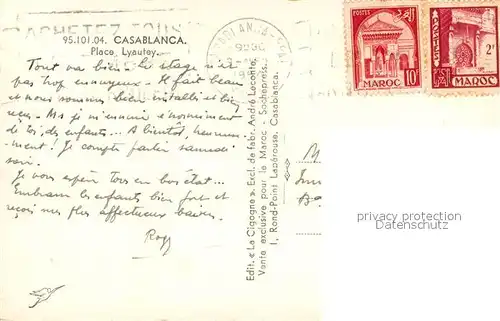 ACHETEZ TOUS
95.101.04. CASABLANCA.
Place Lyautey.
Tout va bien. Le stage n'est
pas trop ennuyeux. Il fait beau
et nous sommes bien installés et bien
reçus. Ms je m'ennuie énormément
de toi, des enfants... A bientôt, heureuse-
ment! Je compte partir samedi
soir.
Je vous espère tous en bon état...
Embrasse les enfants bien fort et
reçois mes plus affectueux baisers.
Edit. « La Cigogne ». Excl. de fabr. André Leconte
Vente exclusive pour le Maroc - Sochepress.
1, Rond-Point Lapérouse. Casablanca.
POSTES
10F
MAROC
2F
MAROC
M
privacy protection
Datenschutz